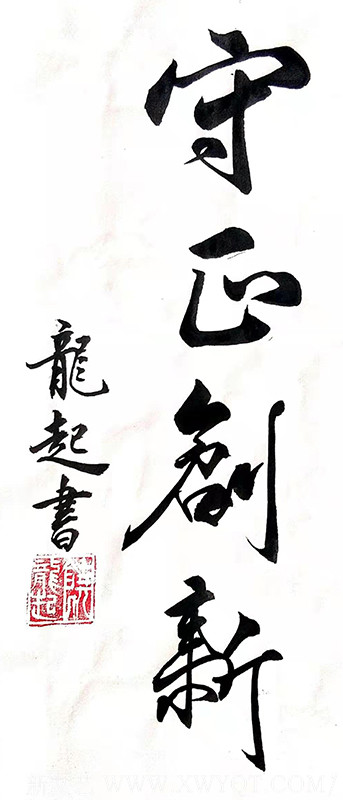 守正創新
龍起書
WWW.XWYQT.COM/